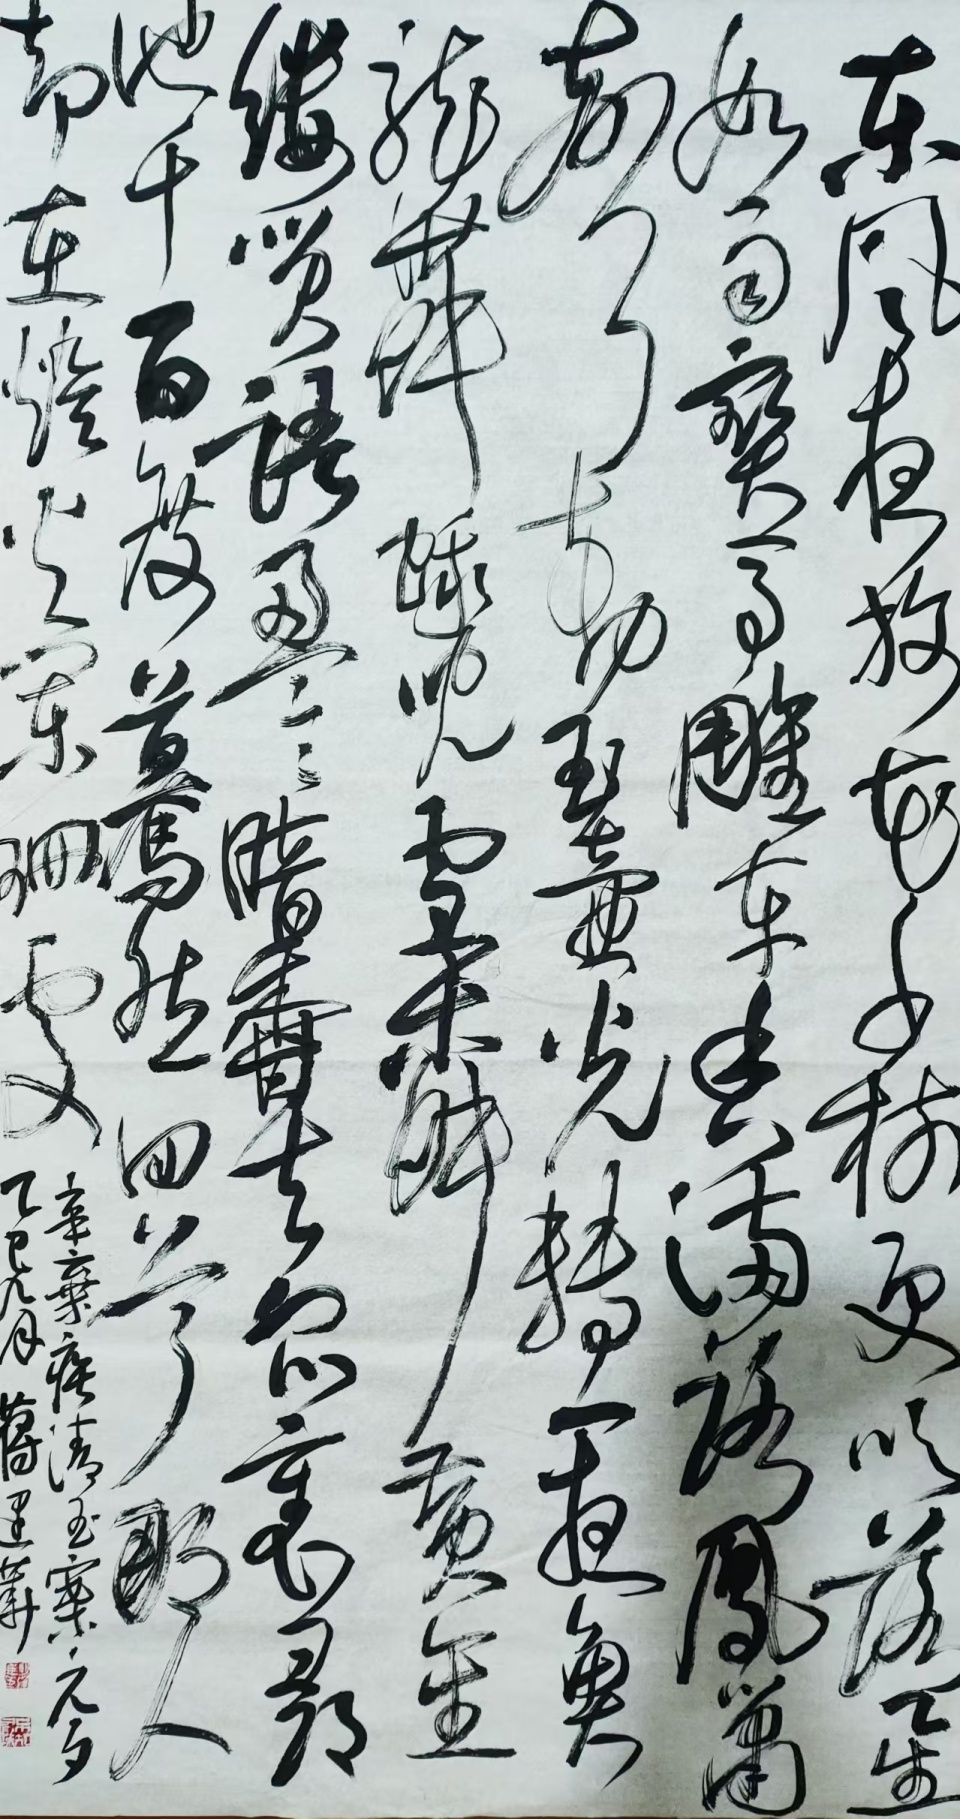 东风夜放花千树更吹落星
如雨寶马雕车香满路鳳箫
聲動玉壶光转一夜鱼
龍舞蛾兒雪柳黄金
缕笑語盈盈暗香去眾裏尋
他千百度驀然回首那人
却在燈火阑珊处
辛棄疾清玉案元夕
乙巳九月蒋建華